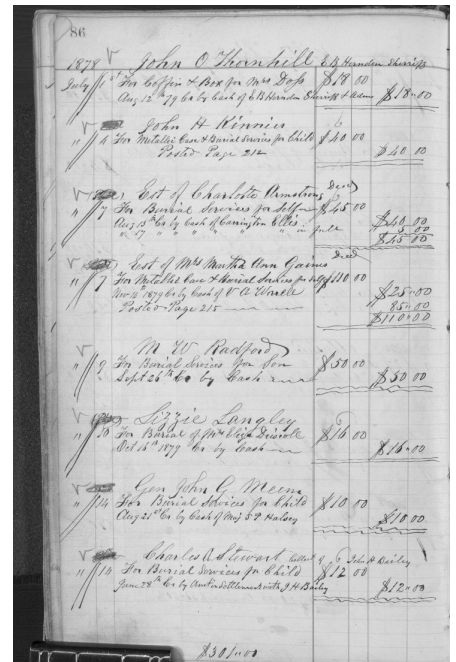 86
1878 John O Thornhill E B Harnden Sheriff
July 1st For Coffin & Box for Mrs Doss $18 00
Aug 12th 79 Cr by Cash of E B Harnden Sheriff & Adm $18.00
John H Kinnier
" 4 For Metallic Case & Burial Services for Child $40 00
Posted Page 212 $40 00
Est of Charlotte Armstrong Died
" 7 For Burial Services for Self $45 00
Aug 13th Cr by Cash of Carrington Ellis $40.00
" 17 " " " " " " in full 5 00
$45 00
Est of Mrs Martha Ann Gaines Died
" 7 For Metallic Case & Burial Services for self $110 00
Nov 1879 Cr by Cash of $25.00
Posted Page 215 " 85.00
$110.00
M W Radford
" 9 For Burial Services for Son $50 00
Sept 26th Cr by Cash $50 00
Lizzie Langley
" 10 For Burial of Mrs Eliza Driscoll $16 00
Oct 16th 1879 Cr by Cash $16.00
Gen John G Meem
" 14 For Burial Services for Child $10 00
Aug 21st Cr by Cash of Maj S P Halsey $10.00
Charles A Stewart Collect of John H Bailey
" 14 For Burial Services for Child $12 00
June 28th Cr by Amt in settlement with J H Bailey $12.00
$301.00